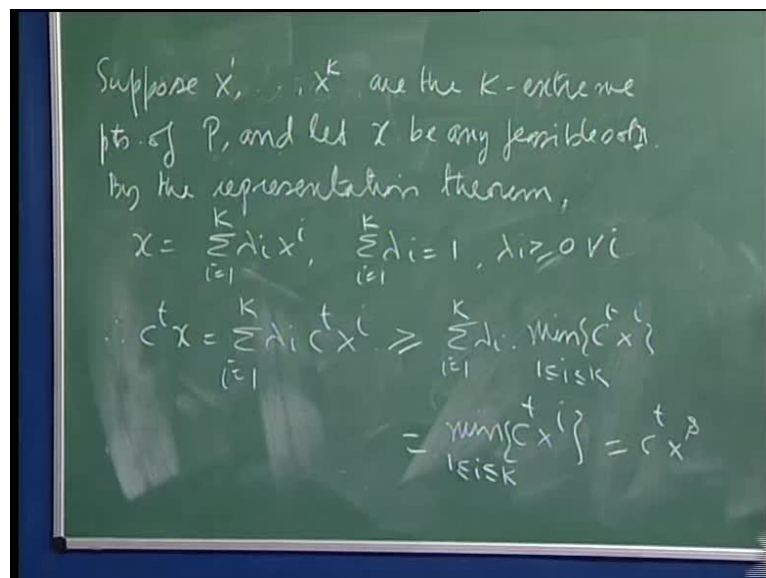 Suppose x¹, ..., xᵏ are the K-extreme
pts. of P, and let x be any feasible soln.
By the representation theorem,
x = Σᵢ₌₁ᴷ λᵢ xⁱ, Σᵢ₌₁ᴷ λᵢ = 1, λᵢ ≥ 0 ∀ i
∴ cᵗx = Σᵢ₌₁ᴷ λᵢ cᵗxⁱ ≥ Σᵢ₌₁ᴷ λᵢ . min{cᵗxⁱ} 1≤i≤K
= min{cᵗxⁱ} 1≤i≤K = cᵗxˢ